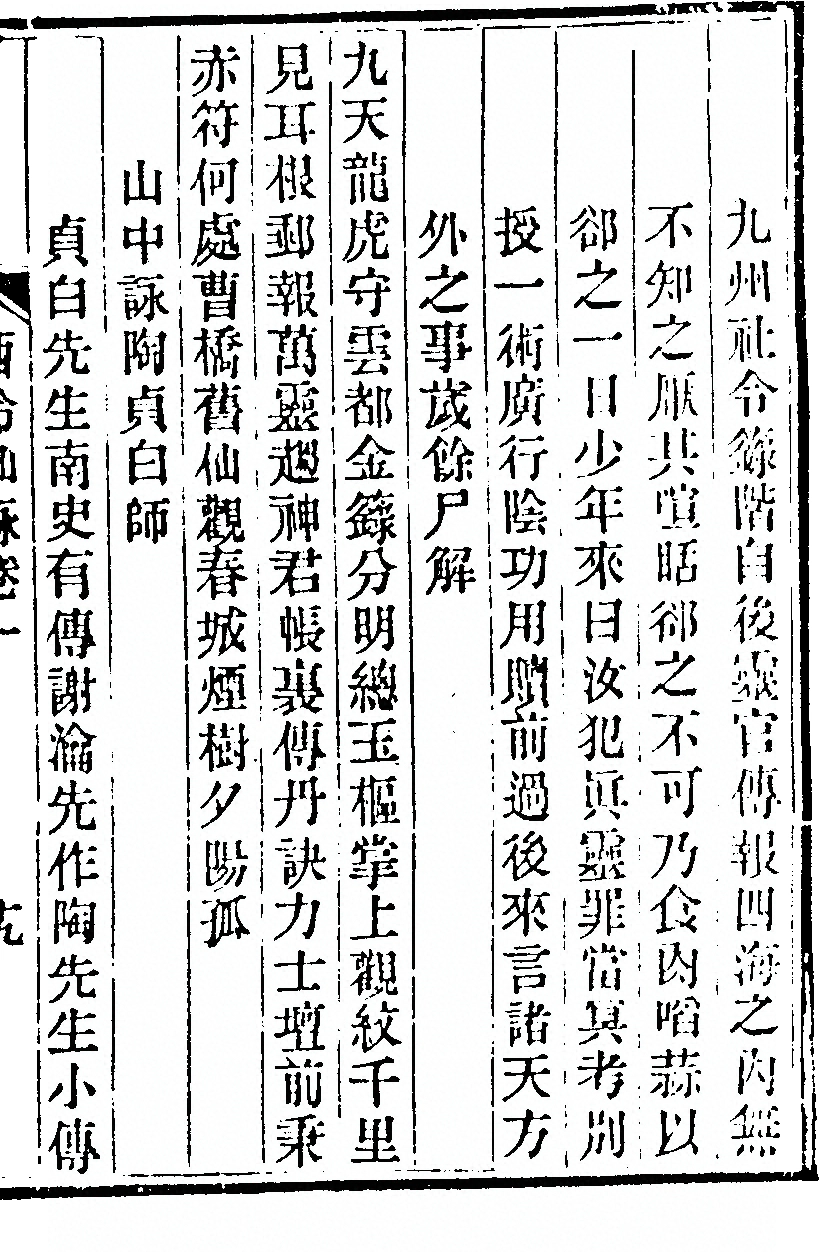 九州社令籙階自後靈官傳報四海之內無
不知之厭其喧聒郤之不可乃食肉啗蒜以
郤之一日少年來曰汝犯眞靈罪當冥考別
授一術廣行陰功用贖前過後來言諸天方
外之事歲餘尸解
九天龍虎守雲都金籙分明總玉樞掌上觀紋千里
見耳根郵報萬靈趨神君帳裏傳丹訣力士壇前秉
赤符何處曹橋舊仙觀春城煙樹夕陽孤
山中詠陶貞白師
貞白先生南史有傳謝瀹先作陶先生小傳
西泠仙詠卷一